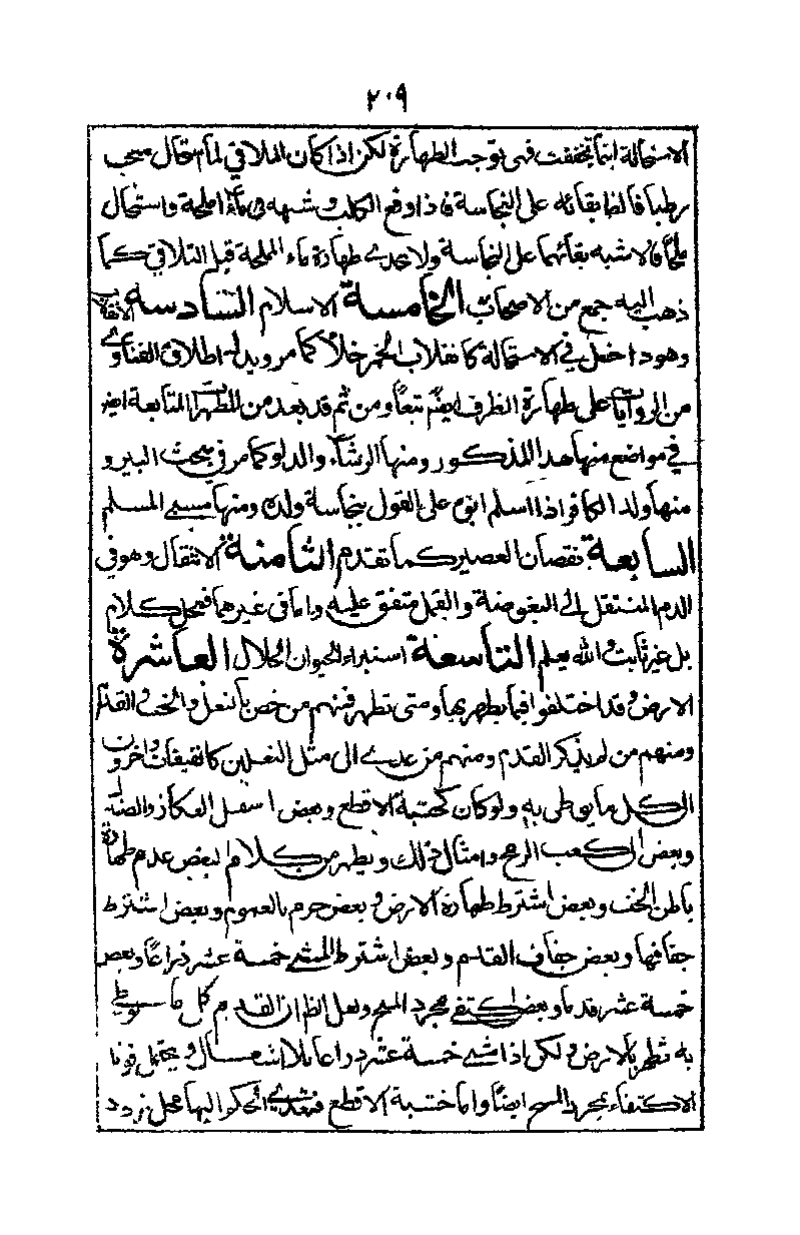 ٢٠٩
الاستحالة اينما تحققت فهى توجب الطهارة لكن اذا كان الملاقي لما استحال
رطبا فالظ بقائه على النجاسة فاذا وقع الكلب وشبهه في ماء المملحة واستحال
ملحًا فالاشبه بقائهما على النجاسة ولا يجدى طهارة ماء المملحة قبل التلاقي كما
ذهب اليه جمع من الاصحاب الخامسة الاسلام السادسة الانقلاب
وهو داخل في الاستحالة كانقلاب الخمر خلاً كما مر ويدل اطلاق الفتاوى
من الروايات على طهارة الظرف ايضًا تبعًا ومن ثم قد يعد من المطهرات المتابعة ايض
في مواضع منها هذا المذكور ومنها الرشاء والدلو كما مر في مبحث البير و
منها ولد الكافر اذا اسلم ابوه على القول بنجاسة ولده ومنها مسبي المسلم
السابعة نقصان العصير كما تقدم الثامنة الانتقال وهو في
الدم المنتقل الى البعوضة والقمل متفق عليه واما في غيرهما فمحل كلام
بل غير ثابت والله يعلم التاسعة استبراء الحيوان الجلال العاشرة
الارض وقد اختلفوا فيما يطهر بها ومتى تطهر فمنهم من خص بالنعل والخف والقدم
ومنهم من لم يذكر القدم ومنهم من عدى الى مثل النعلين كالقبقاب واخرون
الكل ما يوطى به ولو كان كخشبة الاقطع وبعض اسفل العكاز والعصا
وبعض الكعب الرمح وامثال ذلك ويظهر من كلام البعض عدم طهارة
باطن الخف وبعض اشترط طهارة الارض وبعض جزم بالعموم وبعض اشترط
جفافها وبعض جفاف القدم وبعض اشترط المشي خمسة عشر ذراعًا وبعض
خمسة عشر قدما وبعض اكتفى بمجرد المسح ولعل الظ ان القدم وكل ما يوطى
به تطهر بالارض ولكن اذا مشى خمسة عشر ذراعا بلا اشكال ويحتمل قويا
الاكتفاء بمجرد المسح ايضًا واما خشبة الاقطع فتعدى الحكم اليها محل تردد